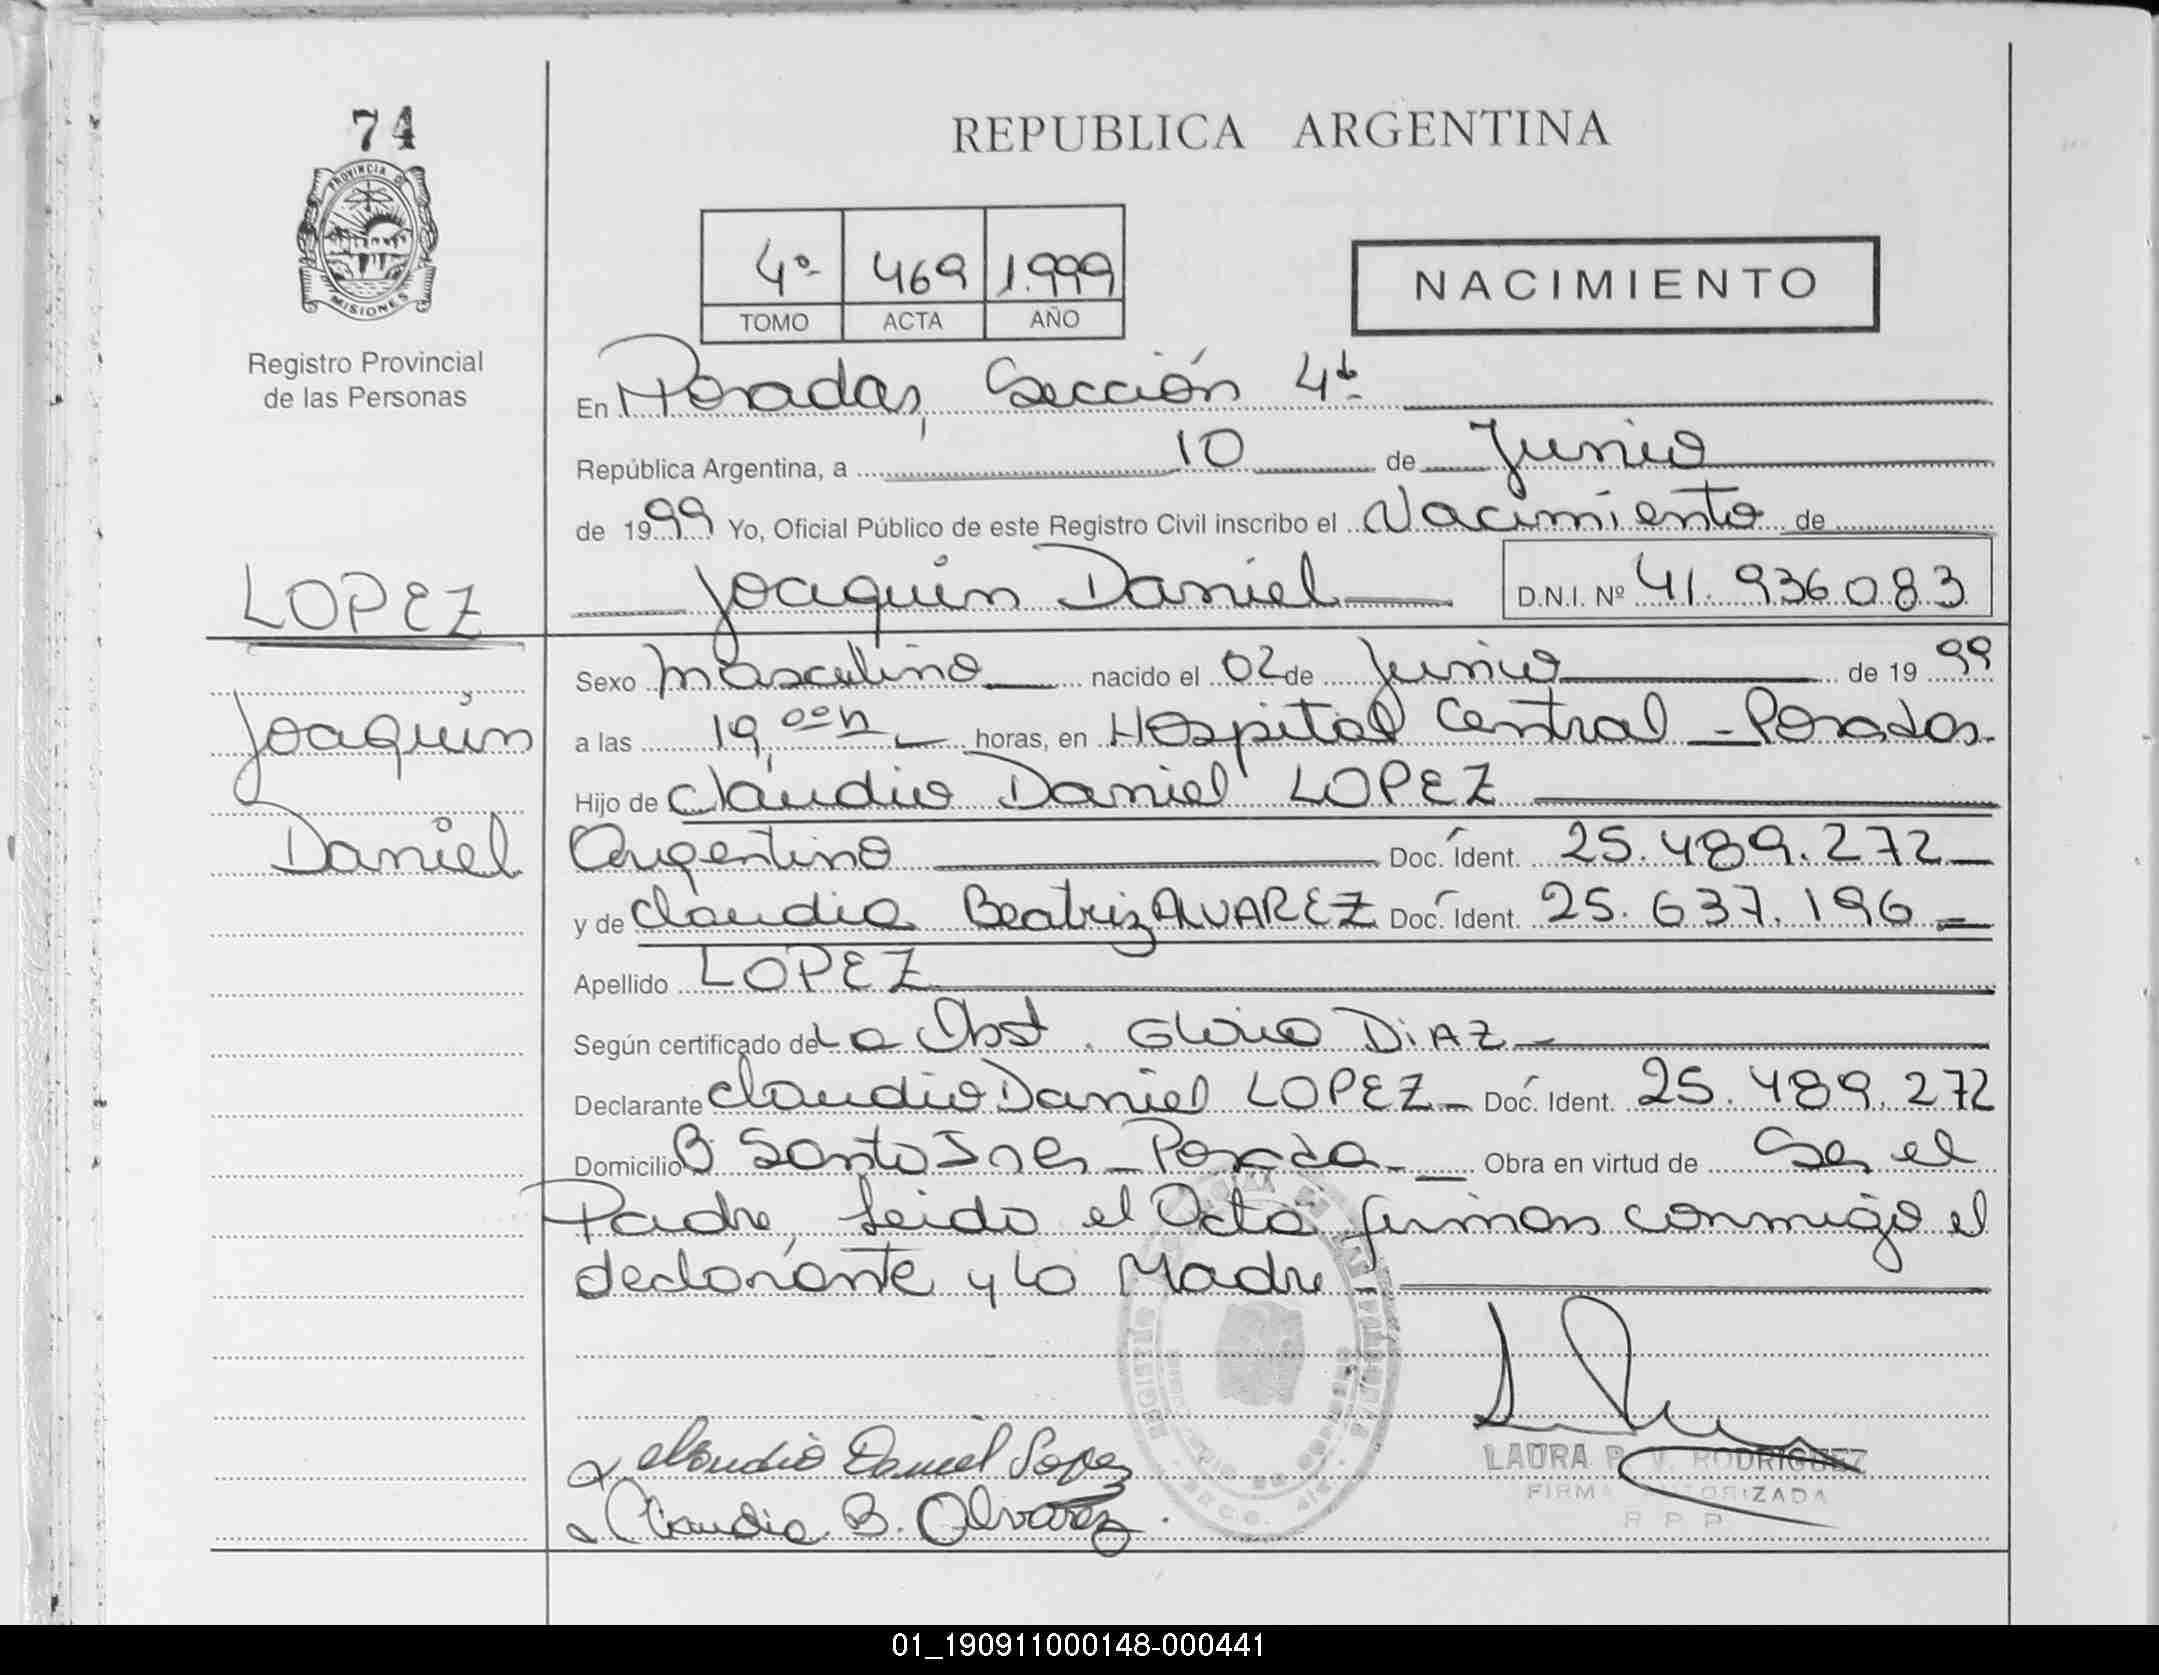 74
PROVINCIA DE
MISIONES
Registro Provincial
de las Personas
LOPEZ
Joaquín
Daniel
REPUBLICA ARGENTINA
4º 469 1.999
TOMO ACTA AÑO
NACIMIENTO
En Posadas, Sección 4ta
República Argentina, a 10 de Junio
de 1999 Yo, Oficial Público de este Registro Civil inscribo el Nacimiento de
Joaquín Daniel D.N.I. Nº 41.936.083
Sexo Masculino nacido el 02 de Junio de 1999
a las 19,00 h horas, en Hospital Central - Posadas.
Hijo de Claudio Daniel LOPEZ
Argentino Doc. Ident. 25.489.272
y de Claudia Beatriz ALVAREZ Doc. Ident. 25.637.196
Apellido LOPEZ
Según certificado de La Obst. Gloria DIAZ
Declarante Claudio Daniel LOPEZ Doc. Ident. 25.489.272
Domicilio Bº Santa Ines - Posadas Obra en virtud de Ser el
Padre, Leido el Acta firman conmigo el
declarante y la Madre
Claudio Daniel Lopez
Claudia B. Alvarez.
LAURA P. V. RODRIGUEZ
FIRMA AUTORIZADA
R P P
01_190911000148-000441